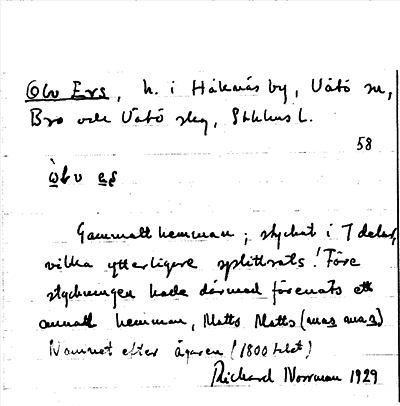 Olov Ers, h. i Håknäs by, Vätö sn,
Bro och Vätö skg, Sthlms l.
58
Gammalt hemman; styckat i 7 delar,
vilka ytterligare splittrats. Före
styckningen hade därmed förenats ett
annat hemman, Matts Matts (mas mas)
Namnet efter ägaren (1800 talet)
Richard Norrman 1929